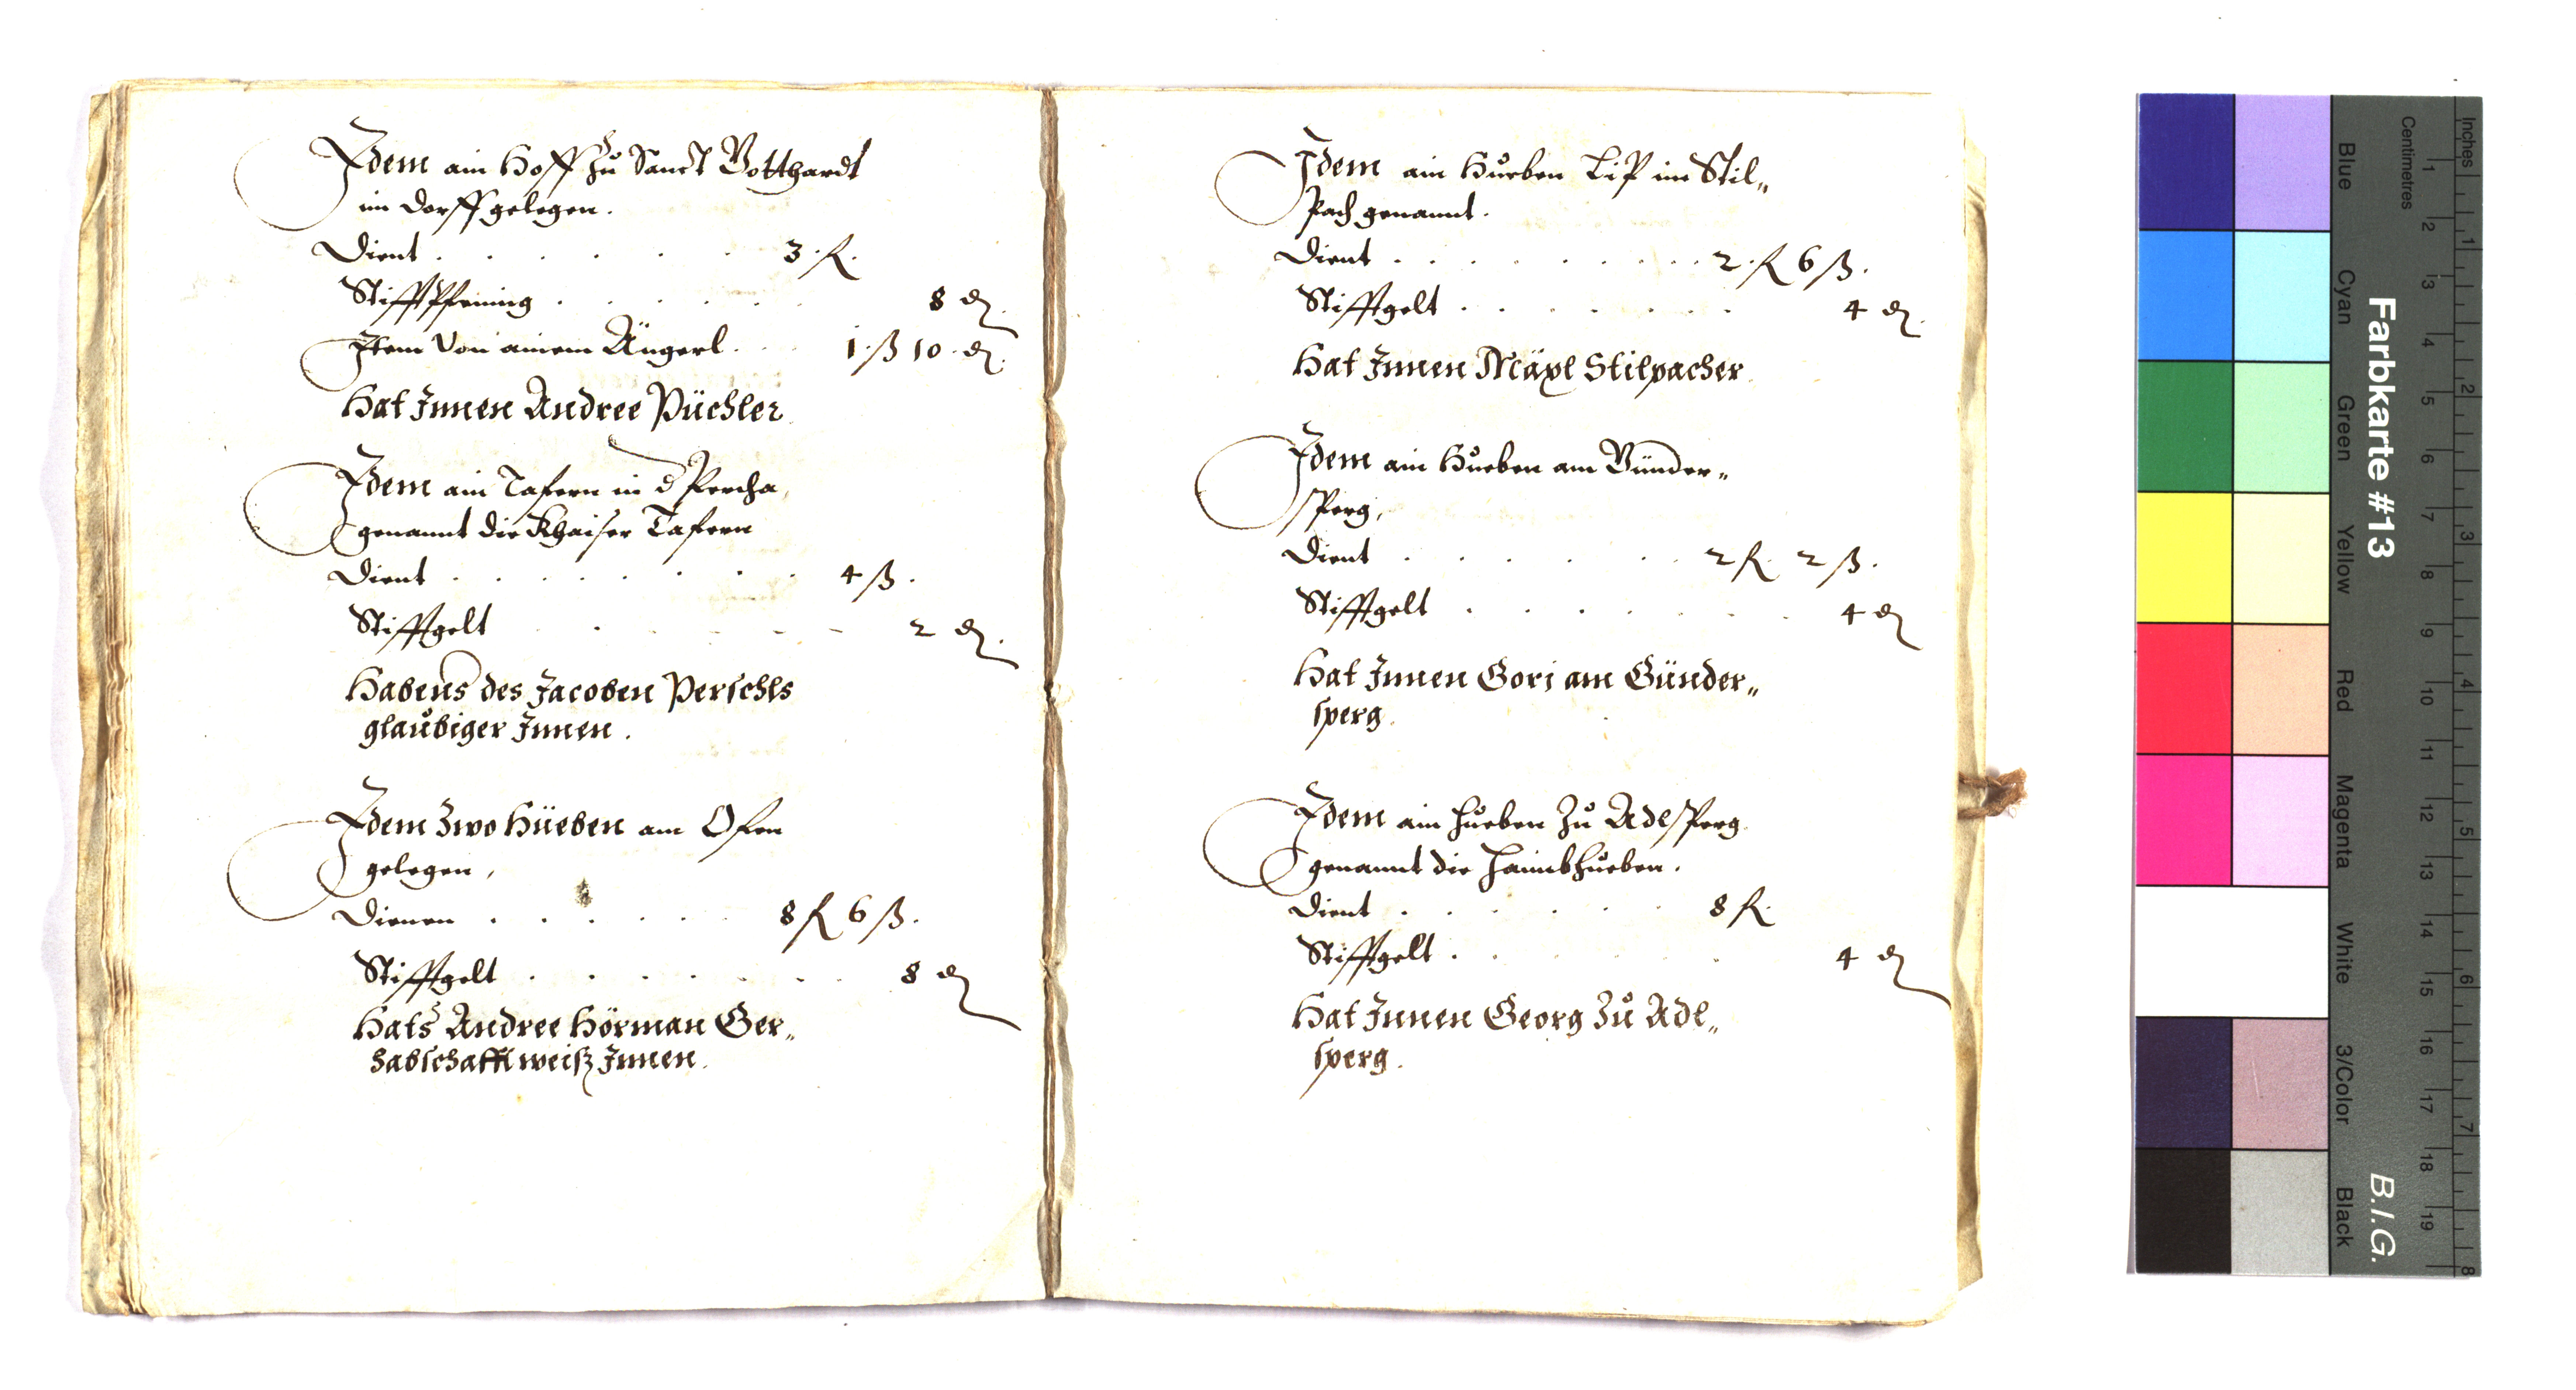 Idem ain Hoff zu Sanct Gotthardt
im dorff gelegen.
Dient . . . . . . 3 . fl.
Stifftpfening . . . . . 8 d.
Item von ainem Ängerl . . . 1 . ß 10 . d.
Hat Innen Andree Püchler
Idem ain Tafern in d Percha,
genannt die Khaiser Tafern
Dient . . . . . . . 4 ß .
Stifftgelt . . . . . 2 d.
Habens des Jacoben Perschls
glaubiger Innen .
Idem Zwo Hüeben am Ofen
gelegen,
Dienen . . . . . . 8 fl 6 ß .
Stifftgelt . . . . . . . 8 d
Hats Andree Hörman Ger„
habschafft weiß Innen.
Idem ain Hueben Lip im Stil„
Pach genannt.
Dient . . . . . . . . . 2 . fl 6 ß .
Stifftgelt . . . . . . . 4 d.
Hat Innen Mäxl Stilpacher
Idem ain Hueben am Günder„
sperg,
Dient . . . . . . 2 fl. 2 ß .
Stifftgelt . . . . . . 4 d
Hat Innen Gori am Günder„
sperg.
Idem ain hueben Zu Adlsperg
genannt die Haimbhueben.
Dient . . . . . 8 fl.
Stifftgelt . . . . 4 d
Hat Innen Georg Zu Adl„
sperg.
Inches
Centimetres
1 2 3 4 5 6 7 8
1 2 3 4 5 6 7 8 9 10 11 12 13 14 15 16 17 18 19
Farbkarte #13
B.I.G.
Blue
Cyan
Green
Yellow
Red
Magenta
White
3/Color
Black